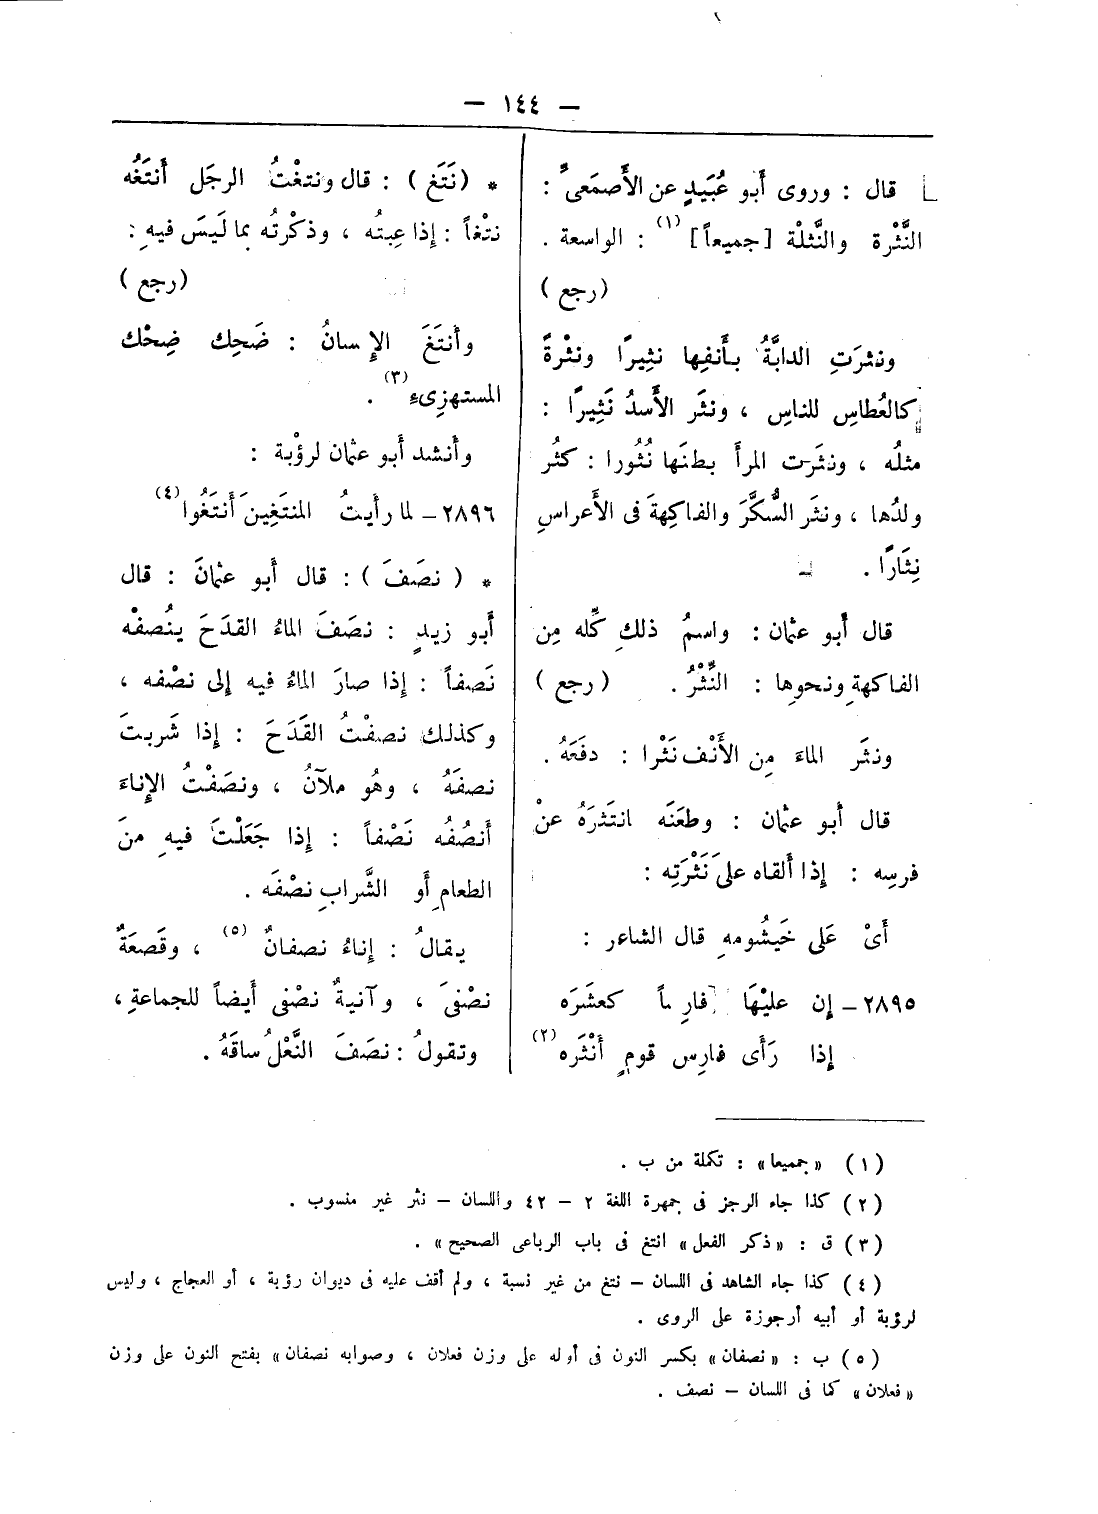 — ١٤٤ —
قال : وروى أَبو عُبَيدٍ عن الأَصمَعىِّ :
النَّثْرة والنَّثلْة [جميعاً] (١) : الواسعة .
(رجع)
ونثرَتِ الدابَّةُ بأَنفِها نثِيرًا ونثْرةً
كالعُطاسِ للناسِ ، ونثَر الأَسدُ نَثِيرًا :
مثلُه ، ونثَرت المرأَ بطنَها نُثُورا : كثُر
ولدُها ، ونثَر السُّكَّرَ والفاكِهةَ فى الأَعراسِ
نِثَارًا .
قال أَبو عثمان : واسمُ ذلكِ كلِّه مِن
الفاكهةِ ونحوِها : النَّثْرُ . (رجع)
ونثَر الماءَ مِن الأَنْف نَثْرا : دفَعَهُ .
قال أَبو عثمان : وطعَنَه انتَثرَهُ عنْ
فرسِه : إذا أَلقاه علىَ نَثْرَتِه :
أَىْ عَلى خَيشُومهِ قال الشاعر :
٢٨٩٥ – إن عليْهَا فارِساً كعشَرَه
إذا رَأَى فارِس قومٍ أَنْثَره (٢)
* (نَتَغ) : قال ونتغْتُ الرجَل أَنتَغُه
نتْغاً : إذا عِبتُه ، وذكرْتُه بما لَيسَ فيهِ :
(رجع)
وأَنتَغَ الإِنسانُ : ضَحِك ضِحْك
المستهزِىءِ (٣) .
وأَنشد أَبو عثمان لرؤْبة :
٢٨٩٦ – لما رأَيتُ المنتَغِينَ أَنتَغُوا (٤)
* (نصَفَ) : قال أَبو عثمانَ : قال
أَبو زيدٍ : نصَفَ الماءُ القدَحَ ينْصُفه
نَصفاً : إذا صارَ الماءُ فيه إلى نصْفه ،
وكذلك نصفْتُ القَدَحَ : إذا شَربتَ
نصفَهُ ، وهُو ملآنُ ، ونصَفْتُ الإِناءَ
أَنصُفُه نَصْفاً : إذا جَعَلْتَ فيهِ منَ
الطعامِ أَو الشَّرابِ نصْفَه .
يقالُ : إناءُ نصفانٌ (٥) ، وقَصعَةٌ
نصْفىَ ، وآنيةٌ نصْفى أَيضاً للجماعةِ ،
وتقولُ : نصَفَ النَّعْلُ ساقَهُ .
(١) «جميعا» : تكملة من ب .
(٢) كذا جاء الرجز فى جمهرة اللغة ٢ – ٤٢ واللسان – نثر غير منسوب .
(٣) ق : «ذكر الفعل» انتغ فى باب الرباعى الصحيح» .
(٤) كذا جاء الشاهد فى اللسان – نتغ من غير نسبة ، ولم أقف عليه فى ديوان رؤبة ، أو العجاج ، وليس
لرؤبة أو أبيه أرجوزة على الروى .
(٥) ب : «نصفان» بكسر النون فى أوله على وزن فعلان ، وصوابه نصفان» بفتح النون على وزن
«فعلان» كما فى اللسان – نصف .